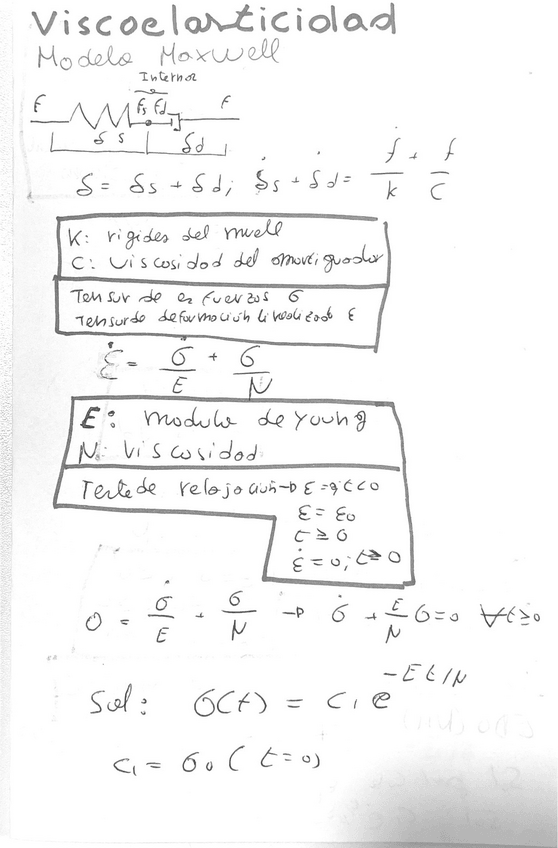 Viscoelasticidad
Modelo Maxwell
Internor
F fs fd F
δs δd
δ = δs + δd; δ̇s + δ̇d = ḟ/k + f/c
K: rigides del muelle
C: Viscosidad del amortiguador
Tensor de esfuerzos σ
Tensor de deformación linealizado ε
ε̇ = σ̇/E + σ/N
E: modulo de young
N: Viscosidad
Teste de relajación → ε = 0; t<0
ε = ε0
t ≥ 0
ε̇ = 0; t ≥ 0
0 = σ̇/E + σ/N → σ̇ + E/N σ = 0 ∀t≥0
Sol: σ(t) = C1 e^(-Et/N)
C1 = σ0 (t=0)